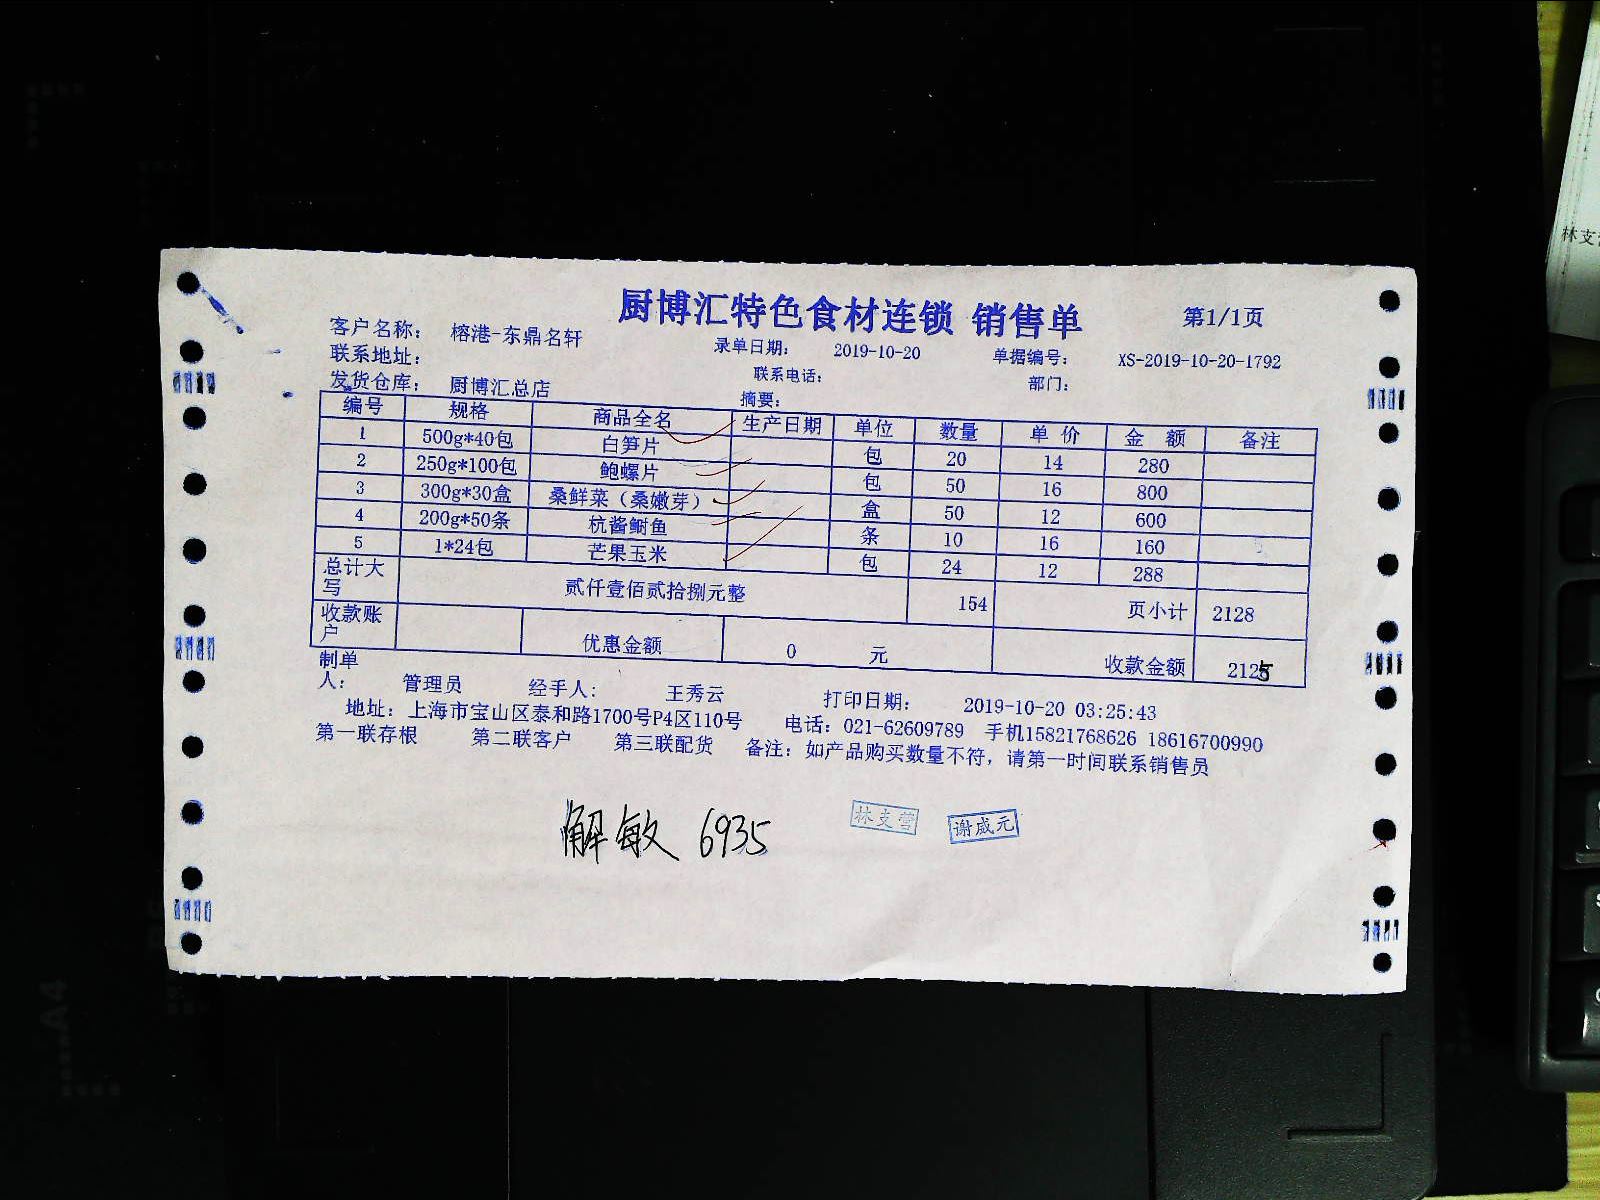 厨博汇特色食材连锁 销售单
第1/1页
客户名称: 榕港-东鼎名轩
录单日期: 2019-10-20 单据编号: XS-2019-10-20-1792
联系地址: 联系电话: 部门:
发货仓库: 厨博汇总店 摘要:
编号 规格 商品全名 生产日期 单位 数量 单 价 金 额 备注
1 500g*40包 白笋片 包 20 14 280
2 250g*100包 鲍螺片 包 50 16 800
3 300g*30盒 桑鲜菜(桑嫩芽) 盒 50 12 600
4 200g*50条 杭酱鲥鱼 条 10 16 160
5 1*24包 芒果玉米 包 24 12 288
总计大写 贰仟壹佰贰拾捌元整 154 页小计 2128
收款账户 优惠金额 0 元 收款金额 2125
制单人: 管理员 经手人: 王秀云 打印日期: 2019-10-20 03:25:43
地址: 上海市宝山区泰和路1700号P4区110号 电话: 021-62609789 手机15821768626 18616700990
第一联存根 第二联客户 第三联配货 备注: 如产品购买数量不符, 请第一时间联系销售员
解敏 6935
林支营 谢成元
林支
A4